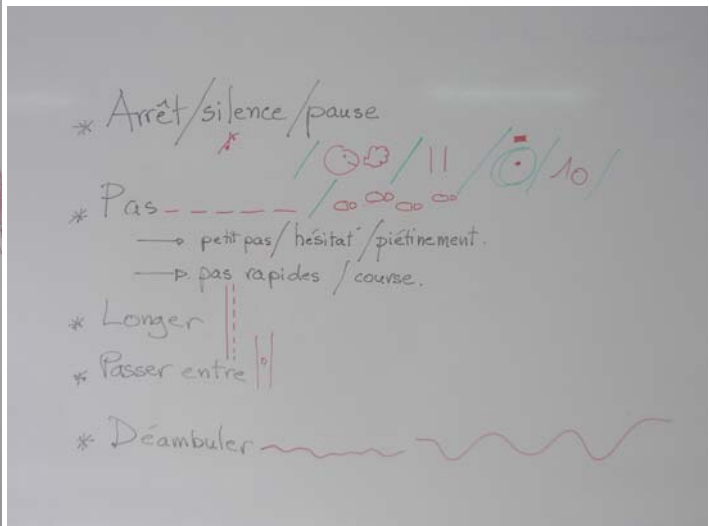 * Arrêt/silence/pause
* Pas
→ petit pas/hésitat°/piétinement.
→ pas rapides / course.
* Longer
* Passer entre
* Déambuler